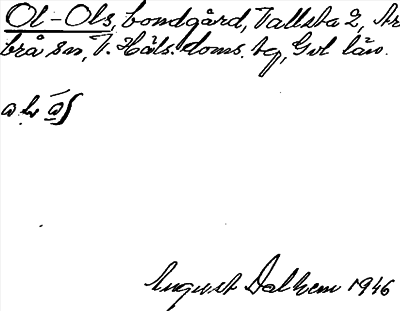 Ol-Ols, bondgård, Vallsta 2, Ar
brå sn, V. Häls. doms. tg, Gvl län.
August Dalhem 1946